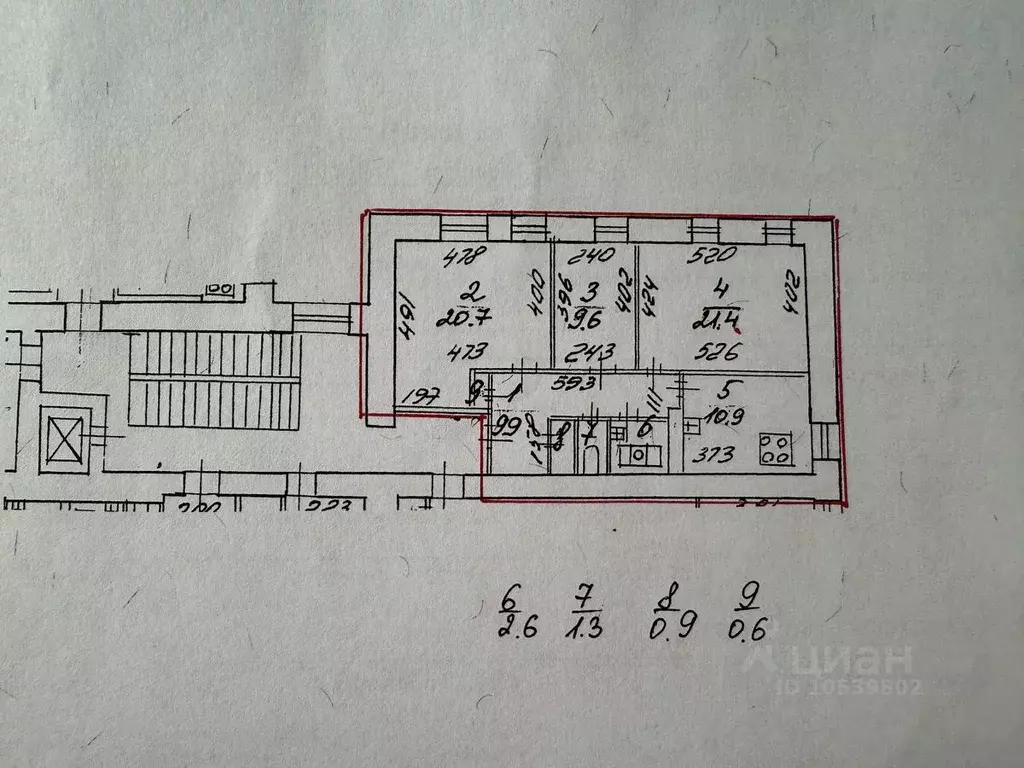 478
240
520
461
2
20.7
400
396
3
9.6
402
424
4
21.4
402
473
243
526
593
197
9
1
99
158
8
7
6
111
5
10.9
373
223
6
2.6
7
1.3
8
0.9
9
0.6
циан
ID 10539802